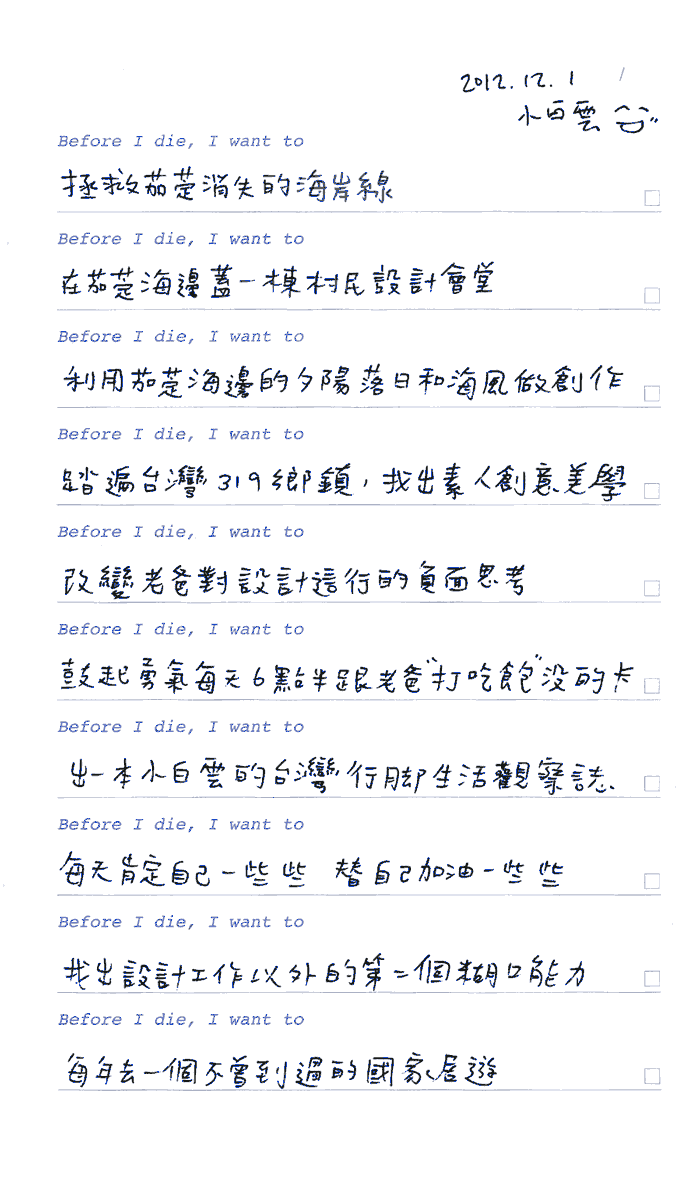 2012.12.1
小白雲
Before I die, I want to
拯救茄萣消失的海岸線
Before I die, I want to
在茄萣海邊蓋一棟村民設計會堂
Before I die, I want to
利用茄萣海邊的夕陽落日和海風做創作
Before I die, I want to
踏遍台灣319鄉鎮，找出素人創意美學
Before I die, I want to
改變老爸對設計這行的負面思考
Before I die, I want to
鼓起勇氣每天6點半跟老爸"打吃飽"沒的卡
Before I die, I want to
出一本小白雲的台灣行腳生活觀察誌.
Before I die, I want to
每天肯定自己一些些 替自己加油一些些
Before I die, I want to
找出設計工作以外的第二個糊口能力
Before I die, I want to
每年去一個不曾到過的國家居遊